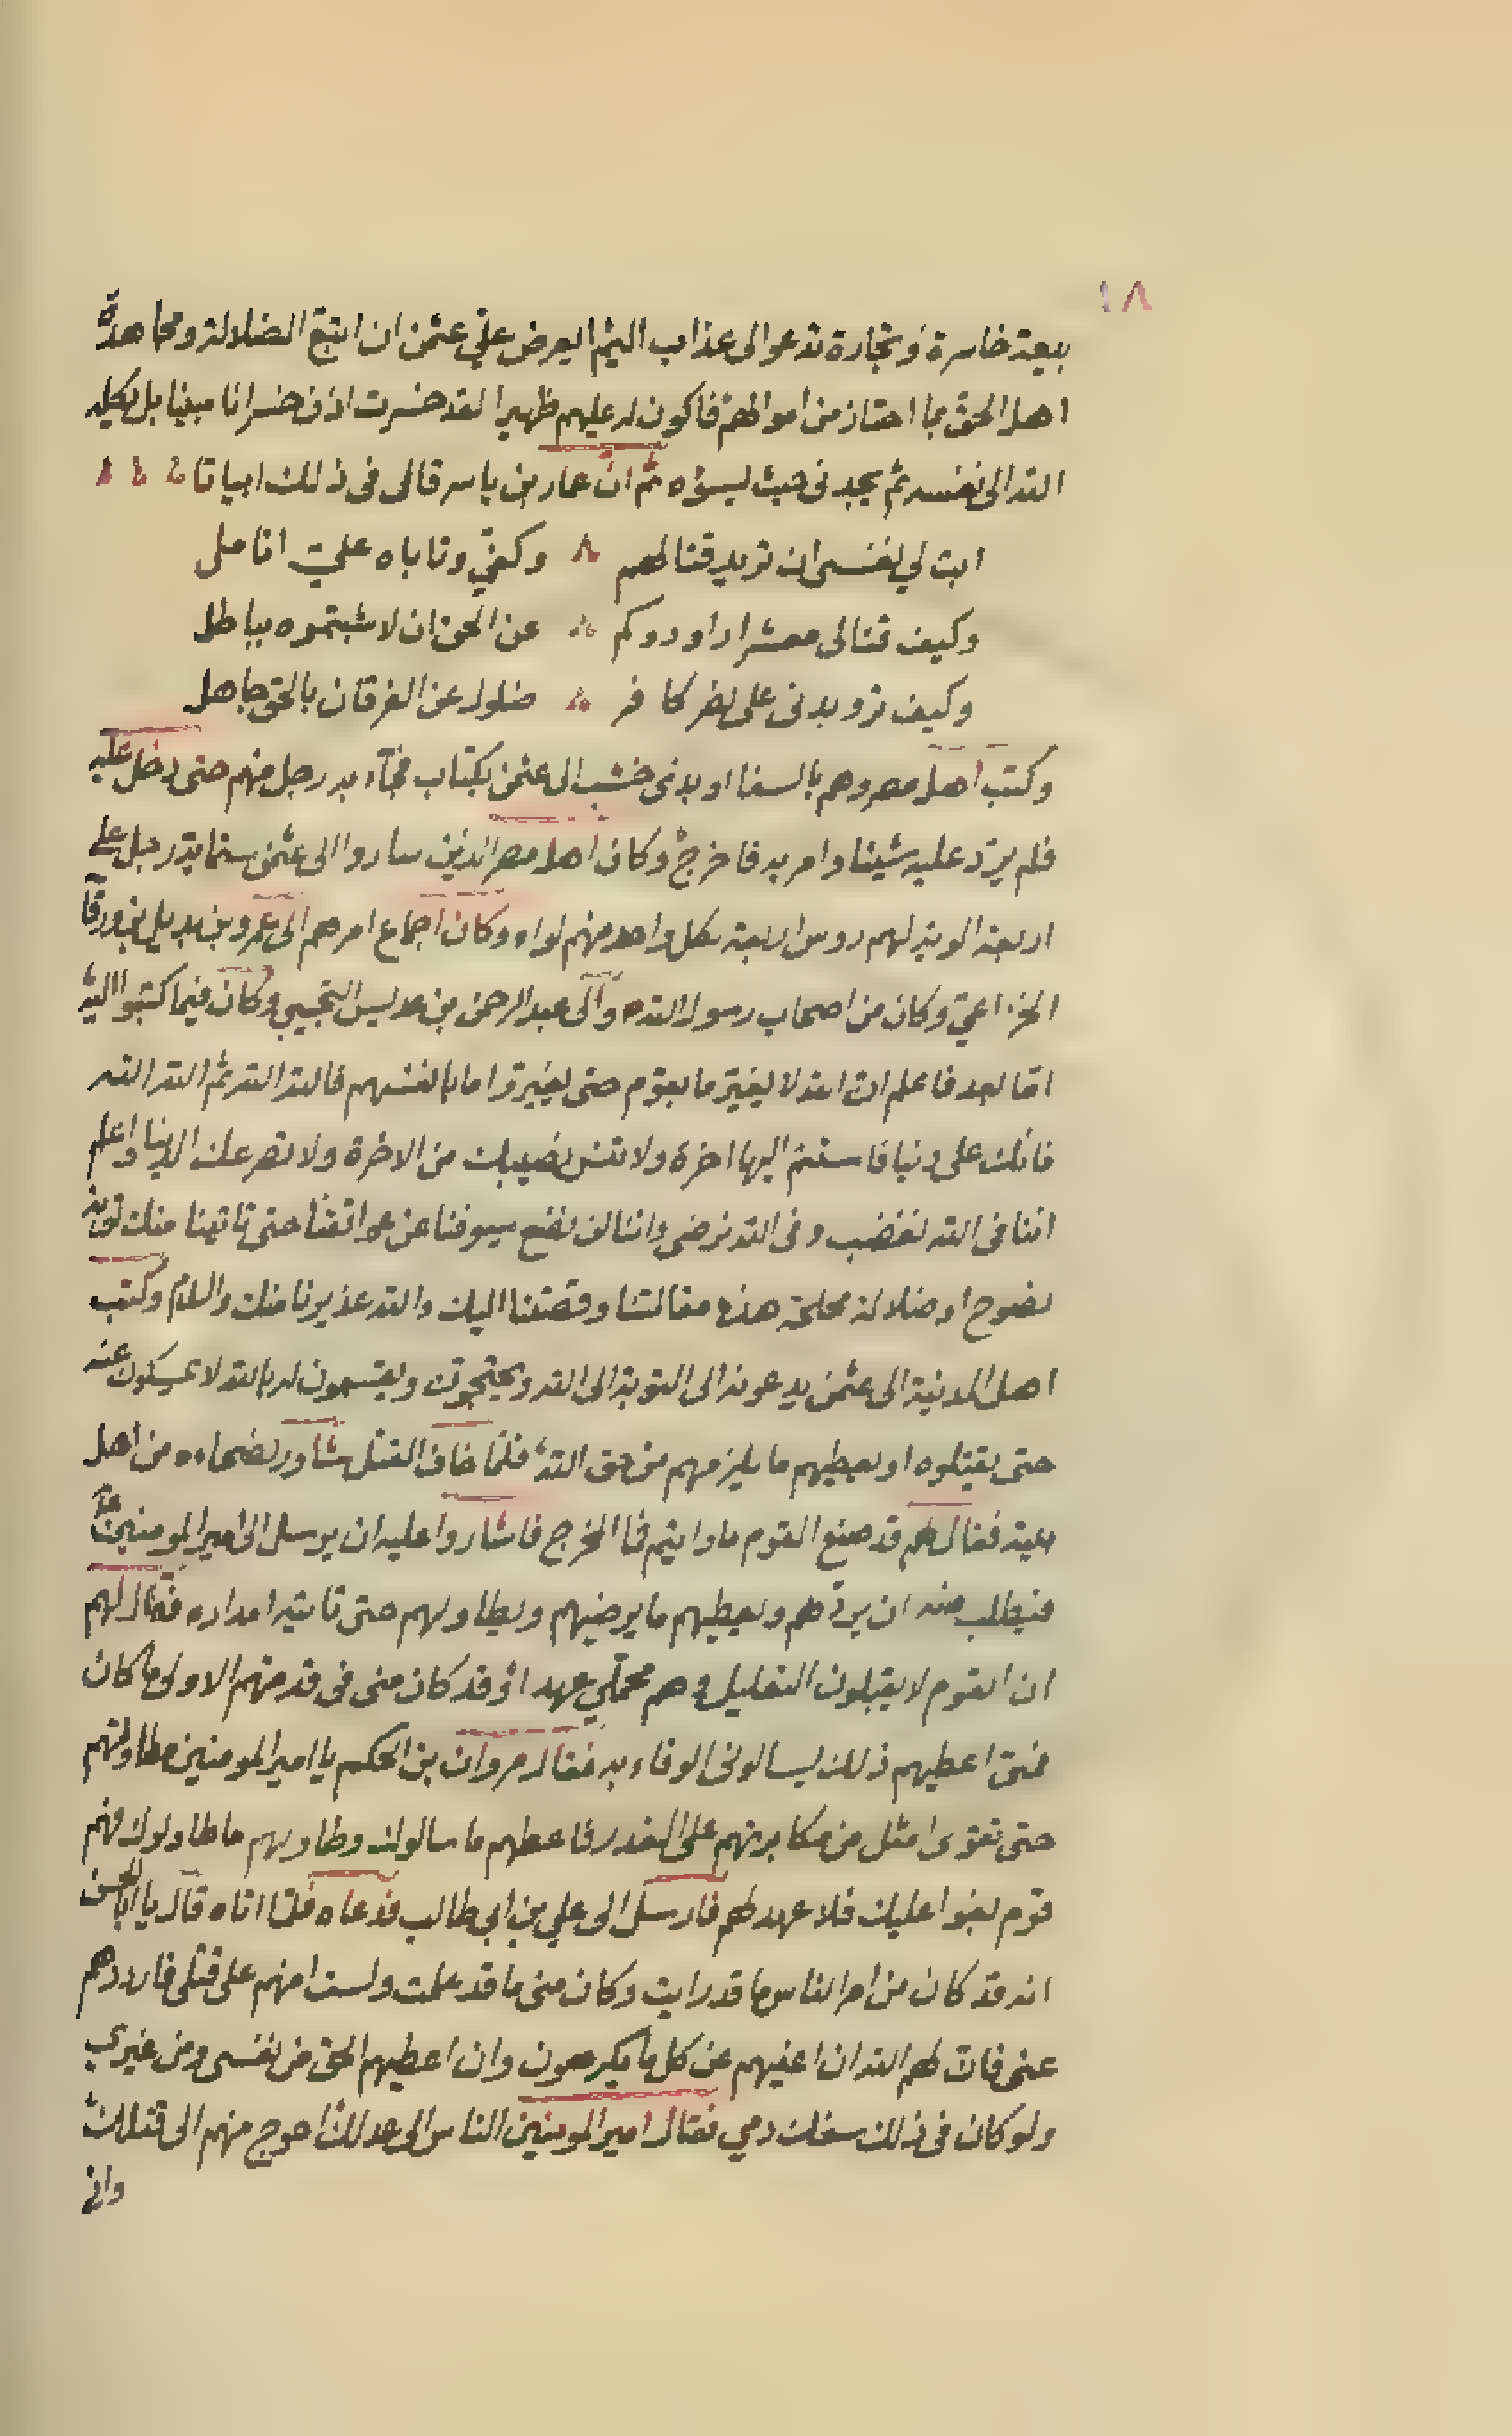 ١٨
بيعة خاسرة وتجارة تدعو الى عذاب اليم ايعرض علي عثمن ان اتبع الضلالة ومجاهدة
اهل الحق بما احتاز من اموالهم فاكون له عليهم ظهيرا لقد خسرت اذن خسرانا مبينا بل يكله
الله الى نفسه ثم يجدني حيث ليسؤه ثم ان عمار بن ياسر قال في ذلك ابياتا
ابت لي نفسي ان تريد قتالهم وكفي وتاباه علي اناملي
وكيف قتالي معشرا داودوكم عن الحق ان لا شبتموه بباطل
وكيف تزويدني على نفر كافر ضلول عن الفرقان بالحق جاهل
وكتب اهل مصر وهم بالسقا او بذي خشب الى عثمن بكتاب فجآء به رجل منهم حتى دخل عليه
فلم يرد عليه شيئا وامر به فاخرج وكان اهل مصر الذين ساروا الى عثمن ستماية رجل على
اربعة الوية لهم روس اربعة بكل واحد منهم لواء وكان اجماع امرهم الى عمرو بن بديل بن ورقا
الخزاعي وكان من اصحاب رسول الله والى عبد الرحمن بن عديس التجيبي وكان فيما كتبوا اليه
اما بعد فاعلم ان الله لا يغير ما بقوم حتى يغيروا ما بانفسهم فالله الله ثم الله الله
فانك على دنيا فاستتم اليها اخرة ولا تنس نصيبك من الاخرة ولا تصر عك الدنيا واعلم
اننا في الله نغضب وفي الله نرضى واننا لن نضع سيوفنا عن عواتقنا حتى تاتينا منك توبة
نصوح او ضلالة مجلحة هذه مقالتنا وقصتنا اليك والله عذيرنا منك والسلام وكتب
اهل المدينة الى عثمن يدعونه الى التوبة الى الله ويحتجون ويقسمون له بالله لا يمسكون عنه
حتى يقتلوه او يعطيهم ما يلزمهم من حق الله فلما خاف القتل شاور نصحاءه من اهل
بيته فقال لهم قد صنع القوم ما رايتم فما المخرج فاشاروا عليه ان يرسل الى امير المومنين
فيطلب منه ان يردهم ويعطيهم ما يرضيهم ويطاولهم حتى تاتيه امداده فقال لهم
ان القوم لا يقبلون التعليل وهم محملي عهدا وقد كان مني في قدمتهم الاولى ما كان
فمتى اعطيهم ذلك يسالوني الوفاء به فقال مروان بن الحكم يا امير المومنين مطاولتهم
حتى تقوى امثل من مكابرتهم على الغدر فاعطهم ما سالوك وطاولهم ما طاولوك فهم
قوم بغوا عليك فلا عهد لهم فارسل الى علي بن ابي طالب فدعاه فلما اتاه قال يا ابا الحسن
انه قد كان من امر الناس ما قد رايت وكان مني ما قد علمت ولست امنهم على قتلي فارددهم
عني فان لهم الله ان اعفيهم عن كل ما يكرهون وان اعطيهم الحق من نفسي ومن غيري
ولو كان في ذلك سفك دمي فقال امير المومنين الناس الى عدلك احوج منهم الى قتلك
واني